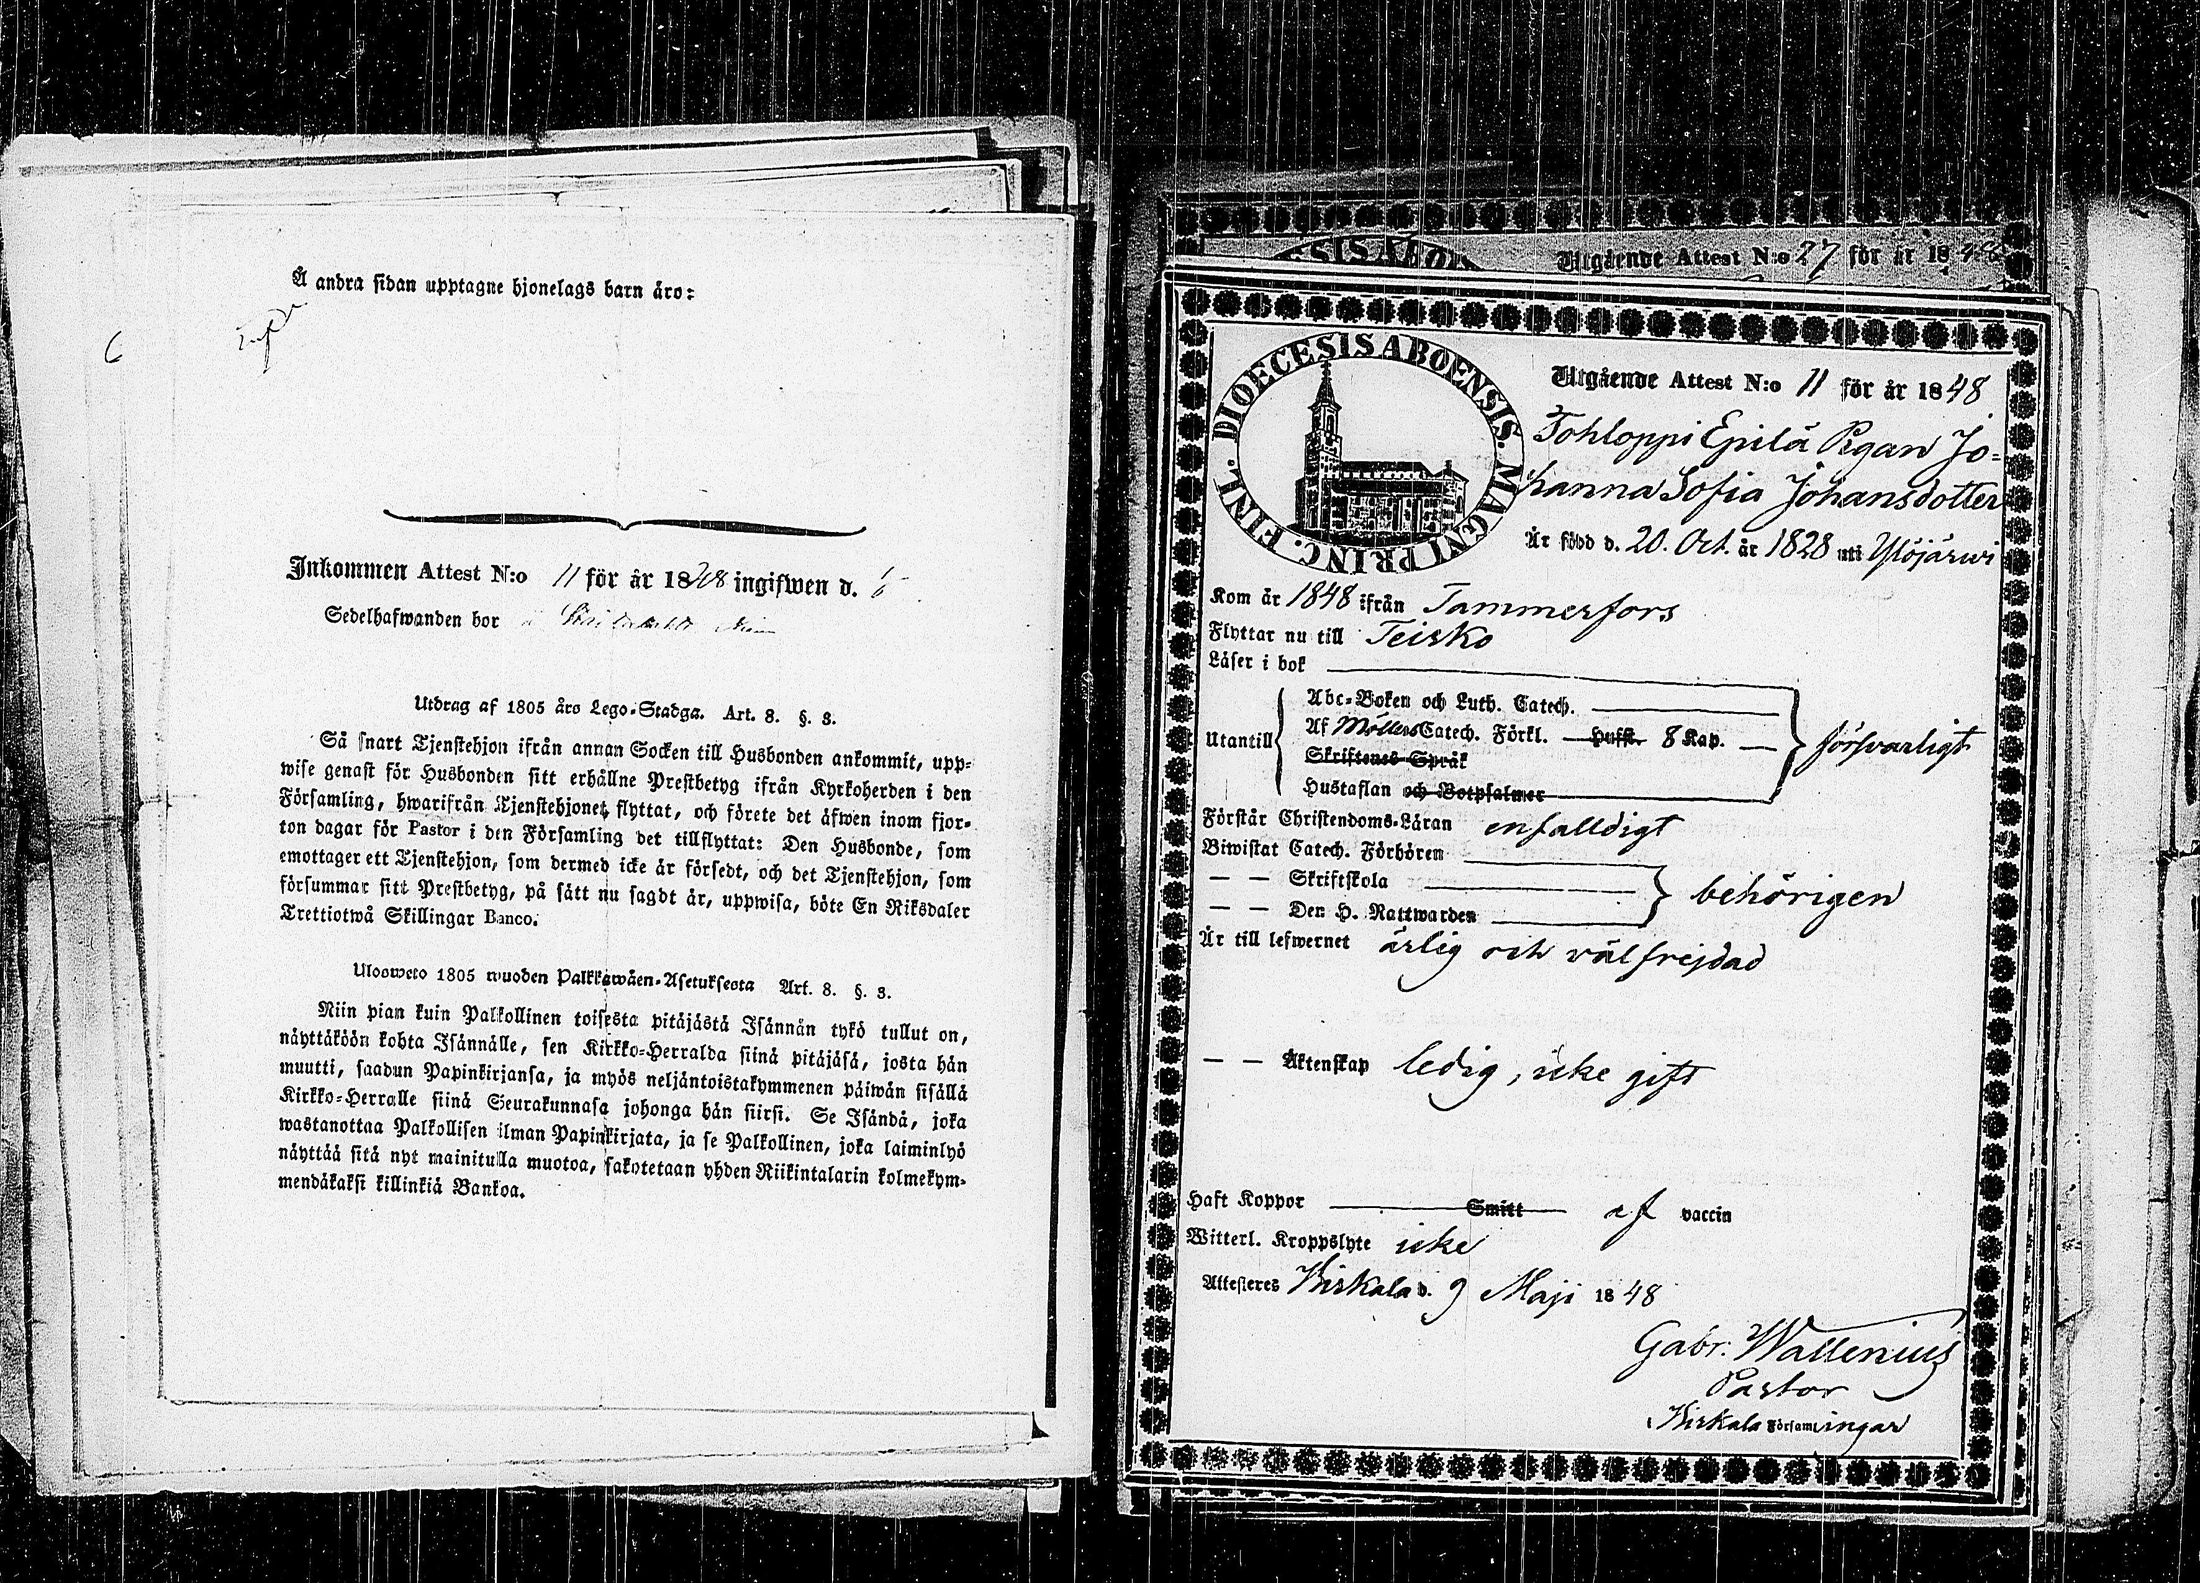 Å andra sidan upptagne hjonelags barn äro:
6
Inkommen Attest N:o 11 för år 1848 ingifwen d.
Sedelhafwanden bor
Utdrag af 1805 års Lego-Stadga. Art. 8. §. 3.
Så snart Tjenstehjon ifrån annan Socken till Husbonden ankommit, upp-
wise genast för Husbonden sitt erhållne Prestbetyg ifrån Kyrkoherden i den
Församling, hwarifrån Tjenstehjonet flyttat, och förete det äfwen inom fjor-
ton dagar för Pastor i den Församling det tillflyttat: Den Husbonde, som
emottager ett Tjenstehjon, som dermed icke är försedt, och det Tjenstehjon, som
försummar sitt Prestbetyg, på sätt nu sagdt är, uppwisa, böte En Riksdaler
Trettiotwå Skillingar Banco.
Ulosweto 1805 wuoden Palkkawäen-Asetuksesta Art. 8. §. 3.
Niin pian kuin Palkollinen toisesta pitäjästä Isännän tykö tullut on,
näyttäköön kohta Isännälle, sen Kirkko-Herralda siinä pitäjäsä, josta hän
muutti, saadun Papinkirjansa, ja myös neljäntoistakymmenen päiwän sisällä
Kirkko-Herralle siinä Seurakunnasa johonga hän siirsi. Se Isändä, joka
wastanottaa Palkollisen ilman Papinkirjata, ja se Palkollinen, joka laiminlyö
näyttää sitä nyt mainitulla muotoa, sakotetaan yhden Riikintalarin kolmekym-
mendäkaksi killinkiä Bankoa.
Utgående Attest N:o 27 för år 18
DIOECESIS ABOENSIS. MAGNI PRINC. FINL.
Utgående Attest N:o 11 för år 1848
Tohloppi Epilä Pigan Jo=
hanna Sofia Johansdotter
Är född d. 20. Oct. år 1828 uti Ylöjärwi
Kom år 1848 ifrån Tammerfors
Flyttar nu till Teisko
Läser i bok
Abc-Boken och Luth. Catech.
Utantill Af Möllers Catech. Förkl. Hufst. 8 Kap. försvarligt
Skriftenes Språk
Hustaflan och Botpsalmer
Förstår Christendoms-Läran enfalldigt
Biwistat Catech. Förhören
— — Skriftskola behörigen
— — Den H. Nattwarden
Är till lefwernet ärlig och välfrejdad
— — Äktenskap ledig, icke gift
Haft Koppor Smitt af vaccin
Witterl. Kroppslyte icke
Attesteres Birkala d. 9 Maji 1848
Gabr. Wallenius
Pastor
Birkala Församlingar